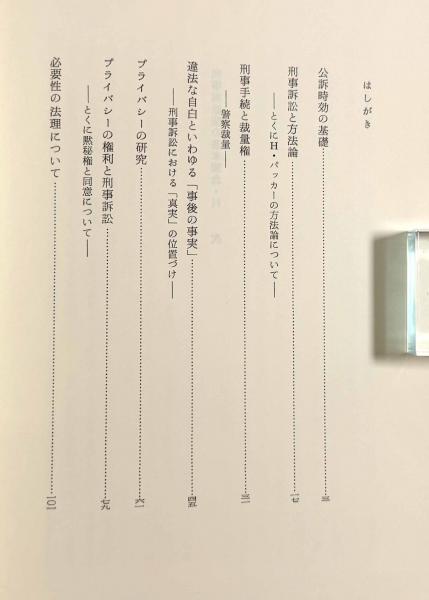 はしがき
公訴時効の基礎……三
刑事訴訟と方法論……一七
――とくにH・パッカーの方法論について――
刑事手続と裁量権……三一
――警察裁量――
違法な自白といわゆる「事後の事実」……四五
――刑事訴訟における「真実」の位置づけ――
プライバシーの研究……六一
プライバシーの権利と刑事訴訟……七九
――とくに黙秘権と同意について――
必要性の法理について……一〇一